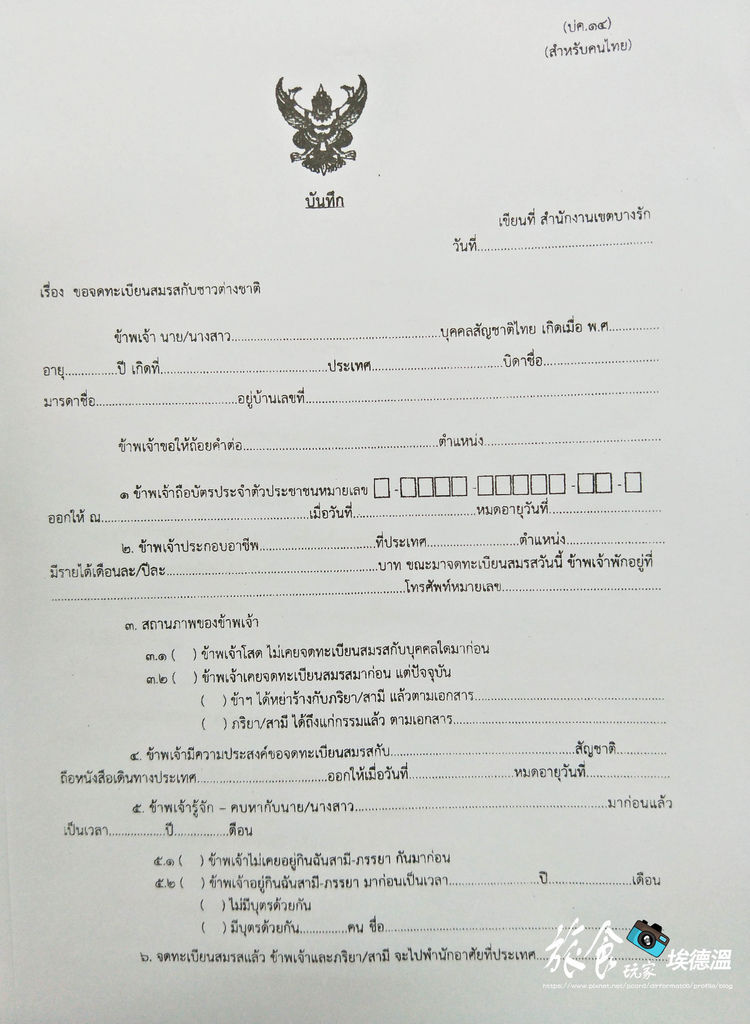 (ปค.๑๔)
(สำหรับคนไทย)
บันทึก
เขียนที่ สำนักงานเขตบางรัก
วันที่..........................................
เรื่อง ขอจดทะเบียนสมรสกับชาวต่างชาติ
ข้าพเจ้า นาย/นางสาว..................................................บุคคลสัญชาติไทย เกิดเมื่อ พ.ศ.............
อายุ.............ปี เกิดที่........................................ประเทศ................................บิดาชื่อ............................
มารดาชื่อ..................................อยู่บ้านเลขที่.....................................................................................
ข้าพเจ้าขอให้ถ้อยคำต่อ...............................................ตำแหน่ง...........................................
๑ ข้าพเจ้าถือบัตรประจำตัวประชาชนหมายเลข □-□□□□-□□□□□-□□-□
ออกให้ ณ........................................................เมื่อวันที่..............................หมดอายุวันที่...........................
๒. ข้าพเจ้าประกอบอาชีพ............................ที่ประเทศ......................ตำแหน่ง........................
มีรายได้เดือนละ/ปีละ...................................................บาท ขณะมาจดทะเบียนสมรสวันนี้ ข้าพเจ้าพักอยู่ที่
.....................................................................................โทรศัพท์หมายเลข.......................................
๓. สถานภาพของข้าพเจ้า
๓.๑ (   ) ข้าพเจ้าโสด ไม่เคยจดทะเบียนสมรสกับบุคคลใดมาก่อน
๓.๒ (   ) ข้าพเจ้าเคยจดทะเบียนสมรสมาก่อน แต่ปัจจุบัน
(   ) ข้าฯ ได้หย่าร้างกับภริยา/สามี แล้วตามเอกสาร..............................................
(   ) ภริยา/สามี ได้ถึงแก่กรรมแล้ว ตามเอกสาร...................................................
๔. ข้าพเจ้ามีความประสงค์ขอจดทะเบียนสมรสกับ.............................................สัญชาติ.............
ถือหนังสือเดินทางประเทศ...............................ออกให้เมื่อวันที่.........................หมดอายุวันที่.....................
๕. ข้าพเจ้ารู้จัก – คบหากับนาย/นางสาว.............................................................มาก่อนแล้ว
เป็นเวลา..................ปี..................เดือน
๕.๑ (   ) ข้าพเจ้าไม่เคยอยู่กินฉันสามี-ภรรยา กันมาก่อน
๕.๒ (   ) ข้าพเจ้าอยู่กินฉันสามี-ภรรยา มาก่อนเป็นเวลา......................ปี.....................เดือน
(   ) ไม่มีบุตรด้วยกัน
(   ) มีบุตรด้วยกัน............คน ชื่อ................................................
๖. จดทะเบียนสมรสแล้ว ข้าพเจ้าและภริยา/สามี จะไปพำนักอาศัยที่ประเทศ................................
旅食玩家 埃德溫